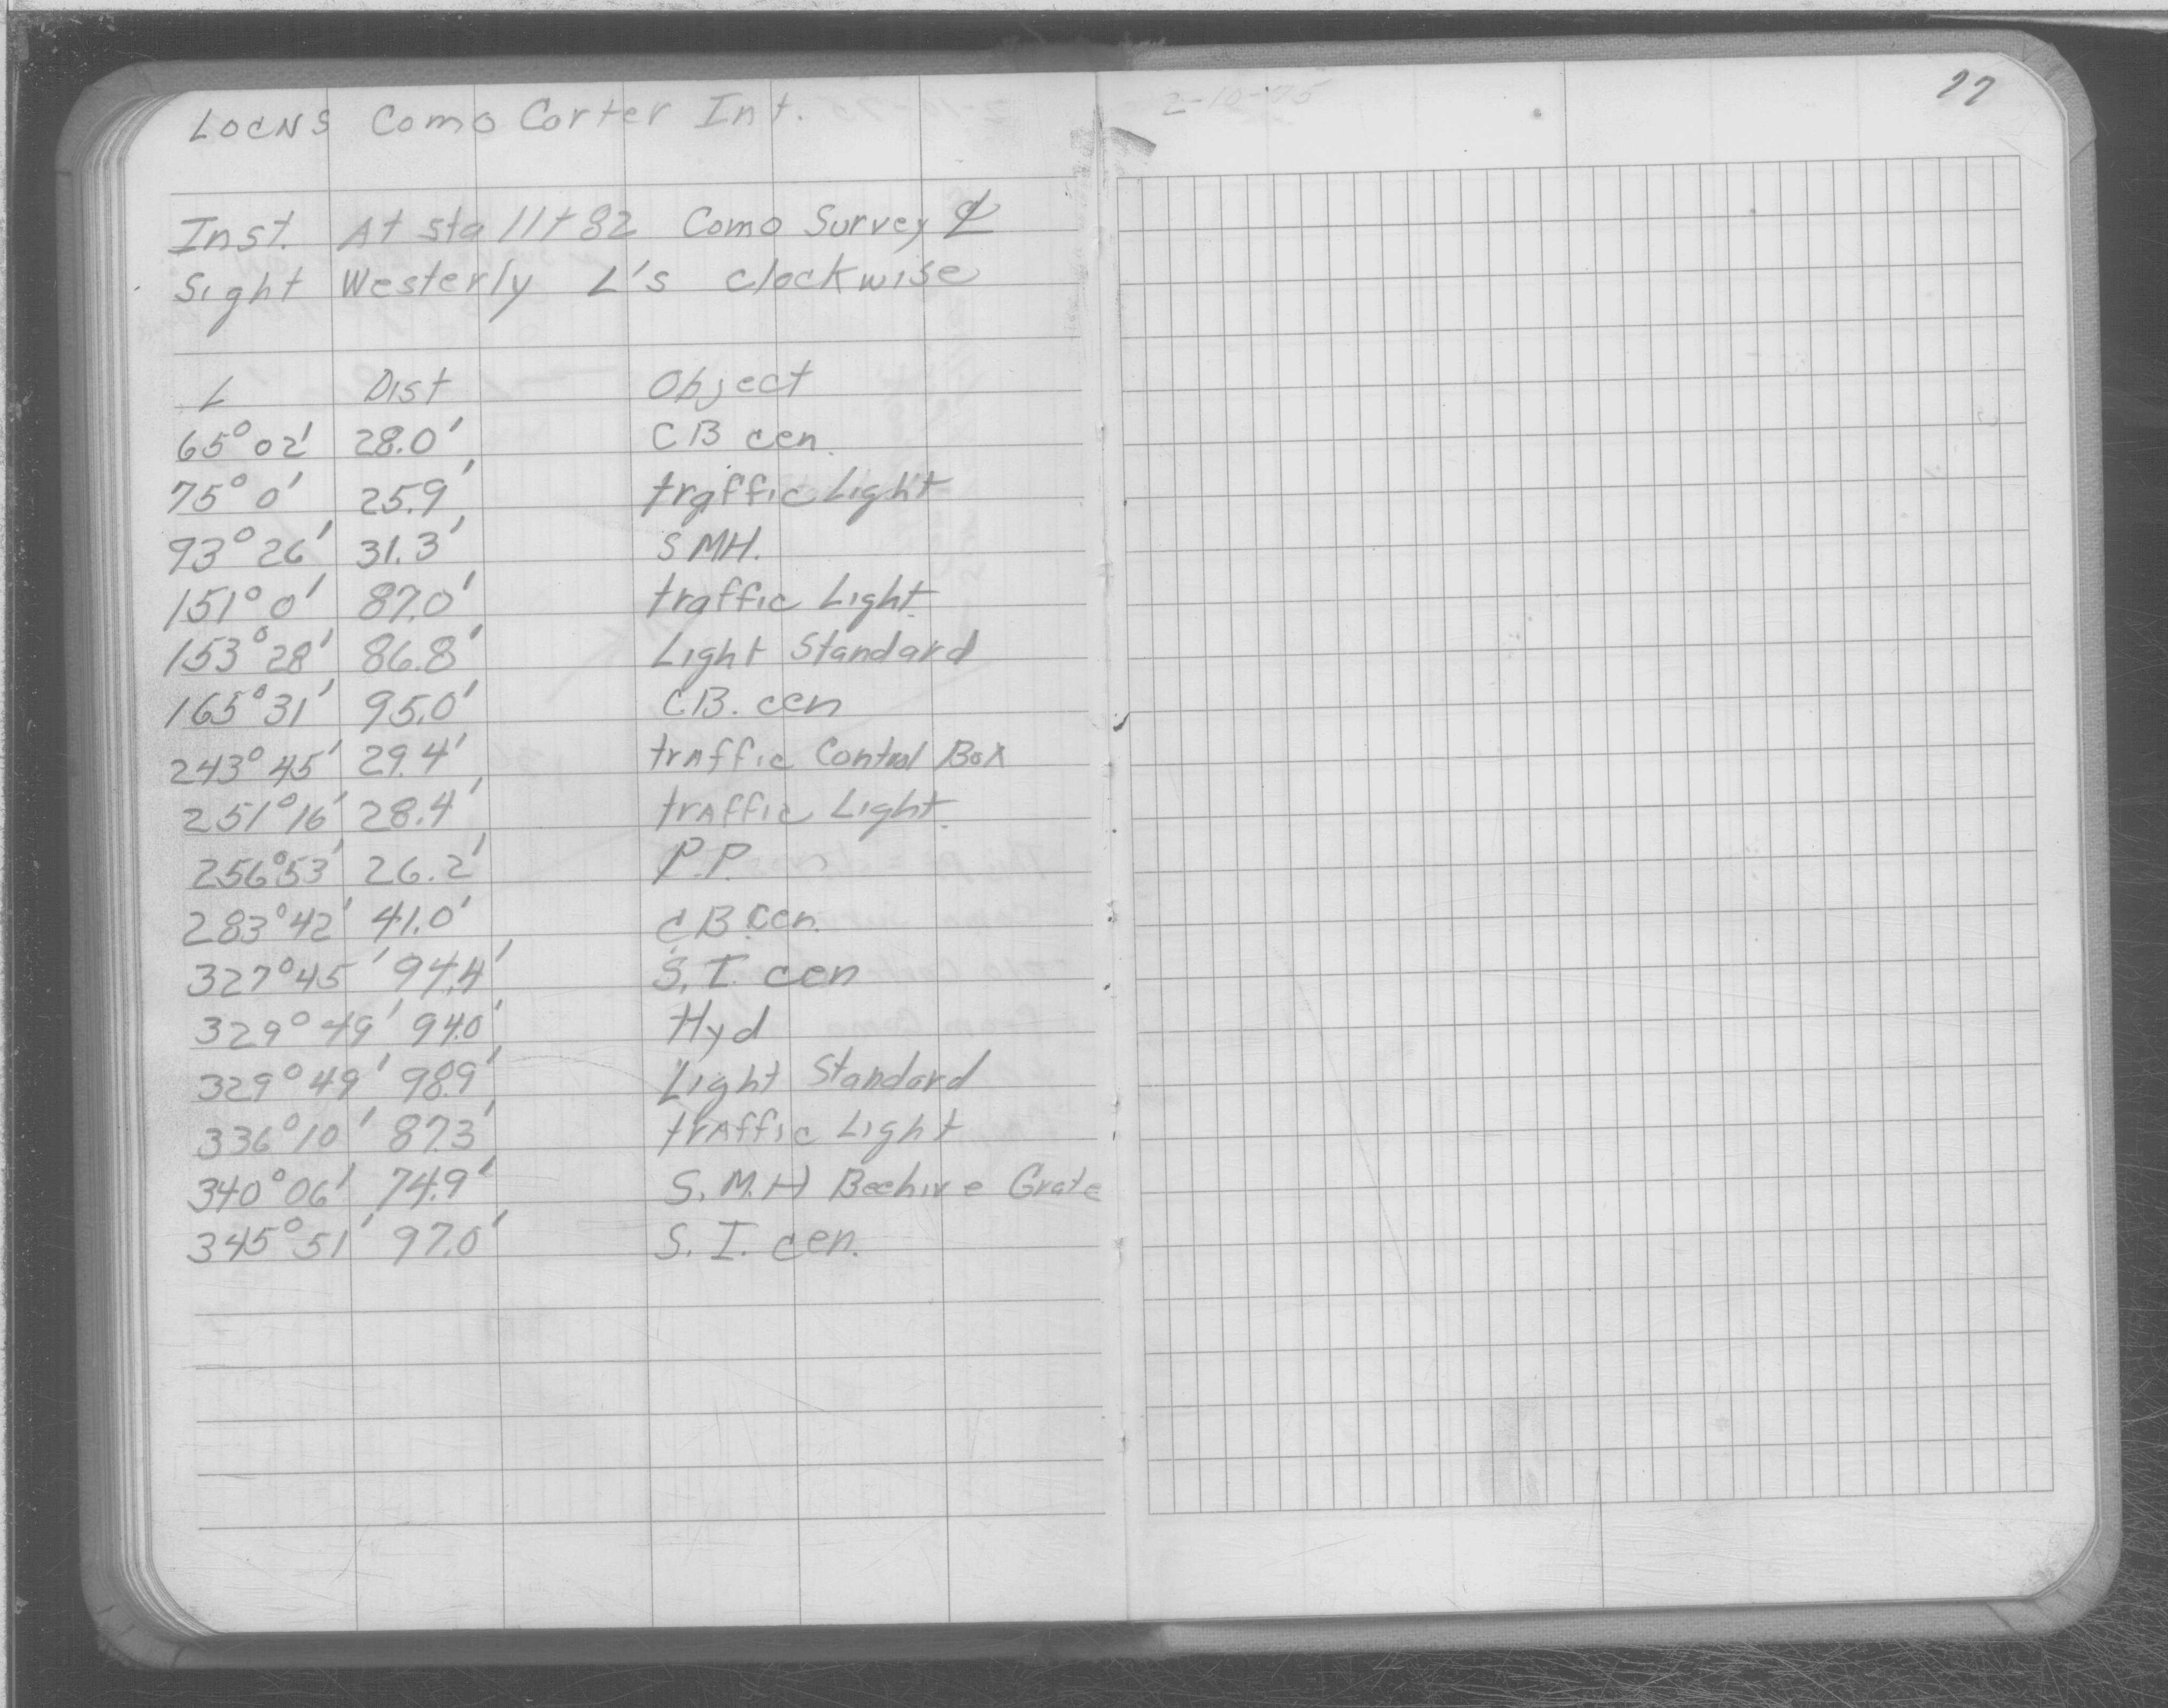 LOCNS Como Carter Int.
2-10-75
77
Inst. At sta 11+82 Como Survey ℄
Sight Westerly ∠'s clockwise
∠ Dist Object
65° 02' 28.0' CB cen.
75° 0' 25.9' traffic Light
93° 26' 31.3' S MH.
151° 0' 87.0' traffic Light
153° 28' 86.8' Light Standard
165° 31' 95.0' C.B. cen
243° 45' 29.4' traffic Control Box
251° 16' 28.4' traffic Light
256° 53' 26.2' P.P.
283° 42' 41.0' C B cen.
327° 45' 94.4' S. I. cen
329° 49' 94.0' Hyd
329° 49' 98.9' Light Standard
336° 10' 87.3' traffic Light
340° 06' 74.9' S. M. H Beehive Grate
345° 51' 97.0' S. I. cen.